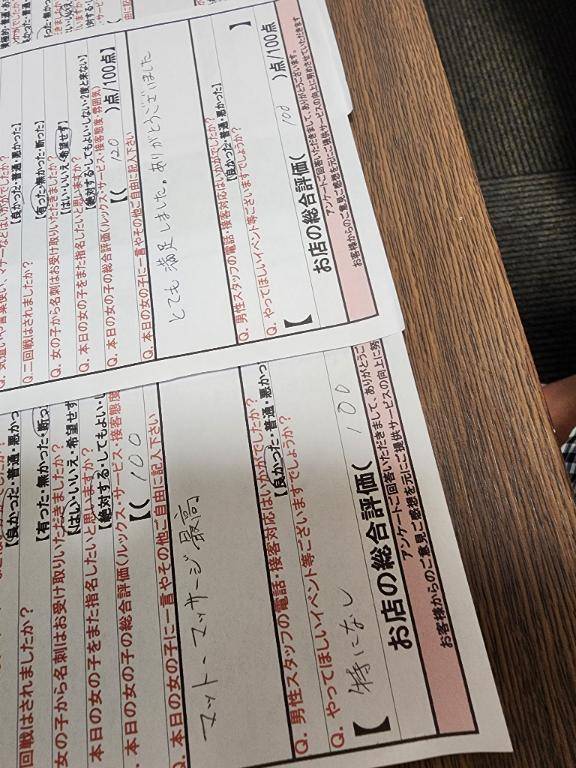 Q. 二回戦はされましたか？
【有った・無かった・断った】
Q. 女の子から名刺はお受け取りいただきましたか？
【はい・いいえ・希望せず】
Q. 本日の女の子をまた指名したいと思いますか？
【絶対する・してもよい・しない・2度と来ない】
Q. 本日の女の子の総合評価(ルックス・サービス・接客態度・雰囲気)
【( 120 )点/100点】
Q. 本日の女の子に一言やその他ご自由に記入下さい
とても満足しました。ありがとうございました
Q. 男性スタッフの電話・接客対応はいかがでしたか？
【良かった・普通・悪かった】
Q. やってほしいイベント等ございますでしょうか？
【 】
お店の総合評価( 100 )点/100点
アンケートご回答いただきまして、ありがとうございます。
お客様からのご意見ご感想を元にご提供サービスの向上に努めさせていただきます
【良かった・普通・悪かっ
回戦はされましたか？
【有った・無かった・断っ
女の子から名刺はお受け取りいただきましたか？
【はい・いいえ・希望せず
本日の女の子をまた指名したいと思いますか？
【絶対する・してもよい・し
本日の女の子の総合評価(ルックス・サービス・接客態度
【( 100
Q. 本日の女の子に一言やその他ご自由に記入下さい
マット、マッサージ最高
Q. 男性スタッフの電話・接客対応はいかがでしたか？
【良かった・普通・悪かっ
Q. やってほしいイベント等ございますでしょうか？
【 特になし
お店の総合評価( 100
アンケートご回答いただきまして、ありがとうご
お客様からのご意見ご感想を元にご提供サービスの向上に努